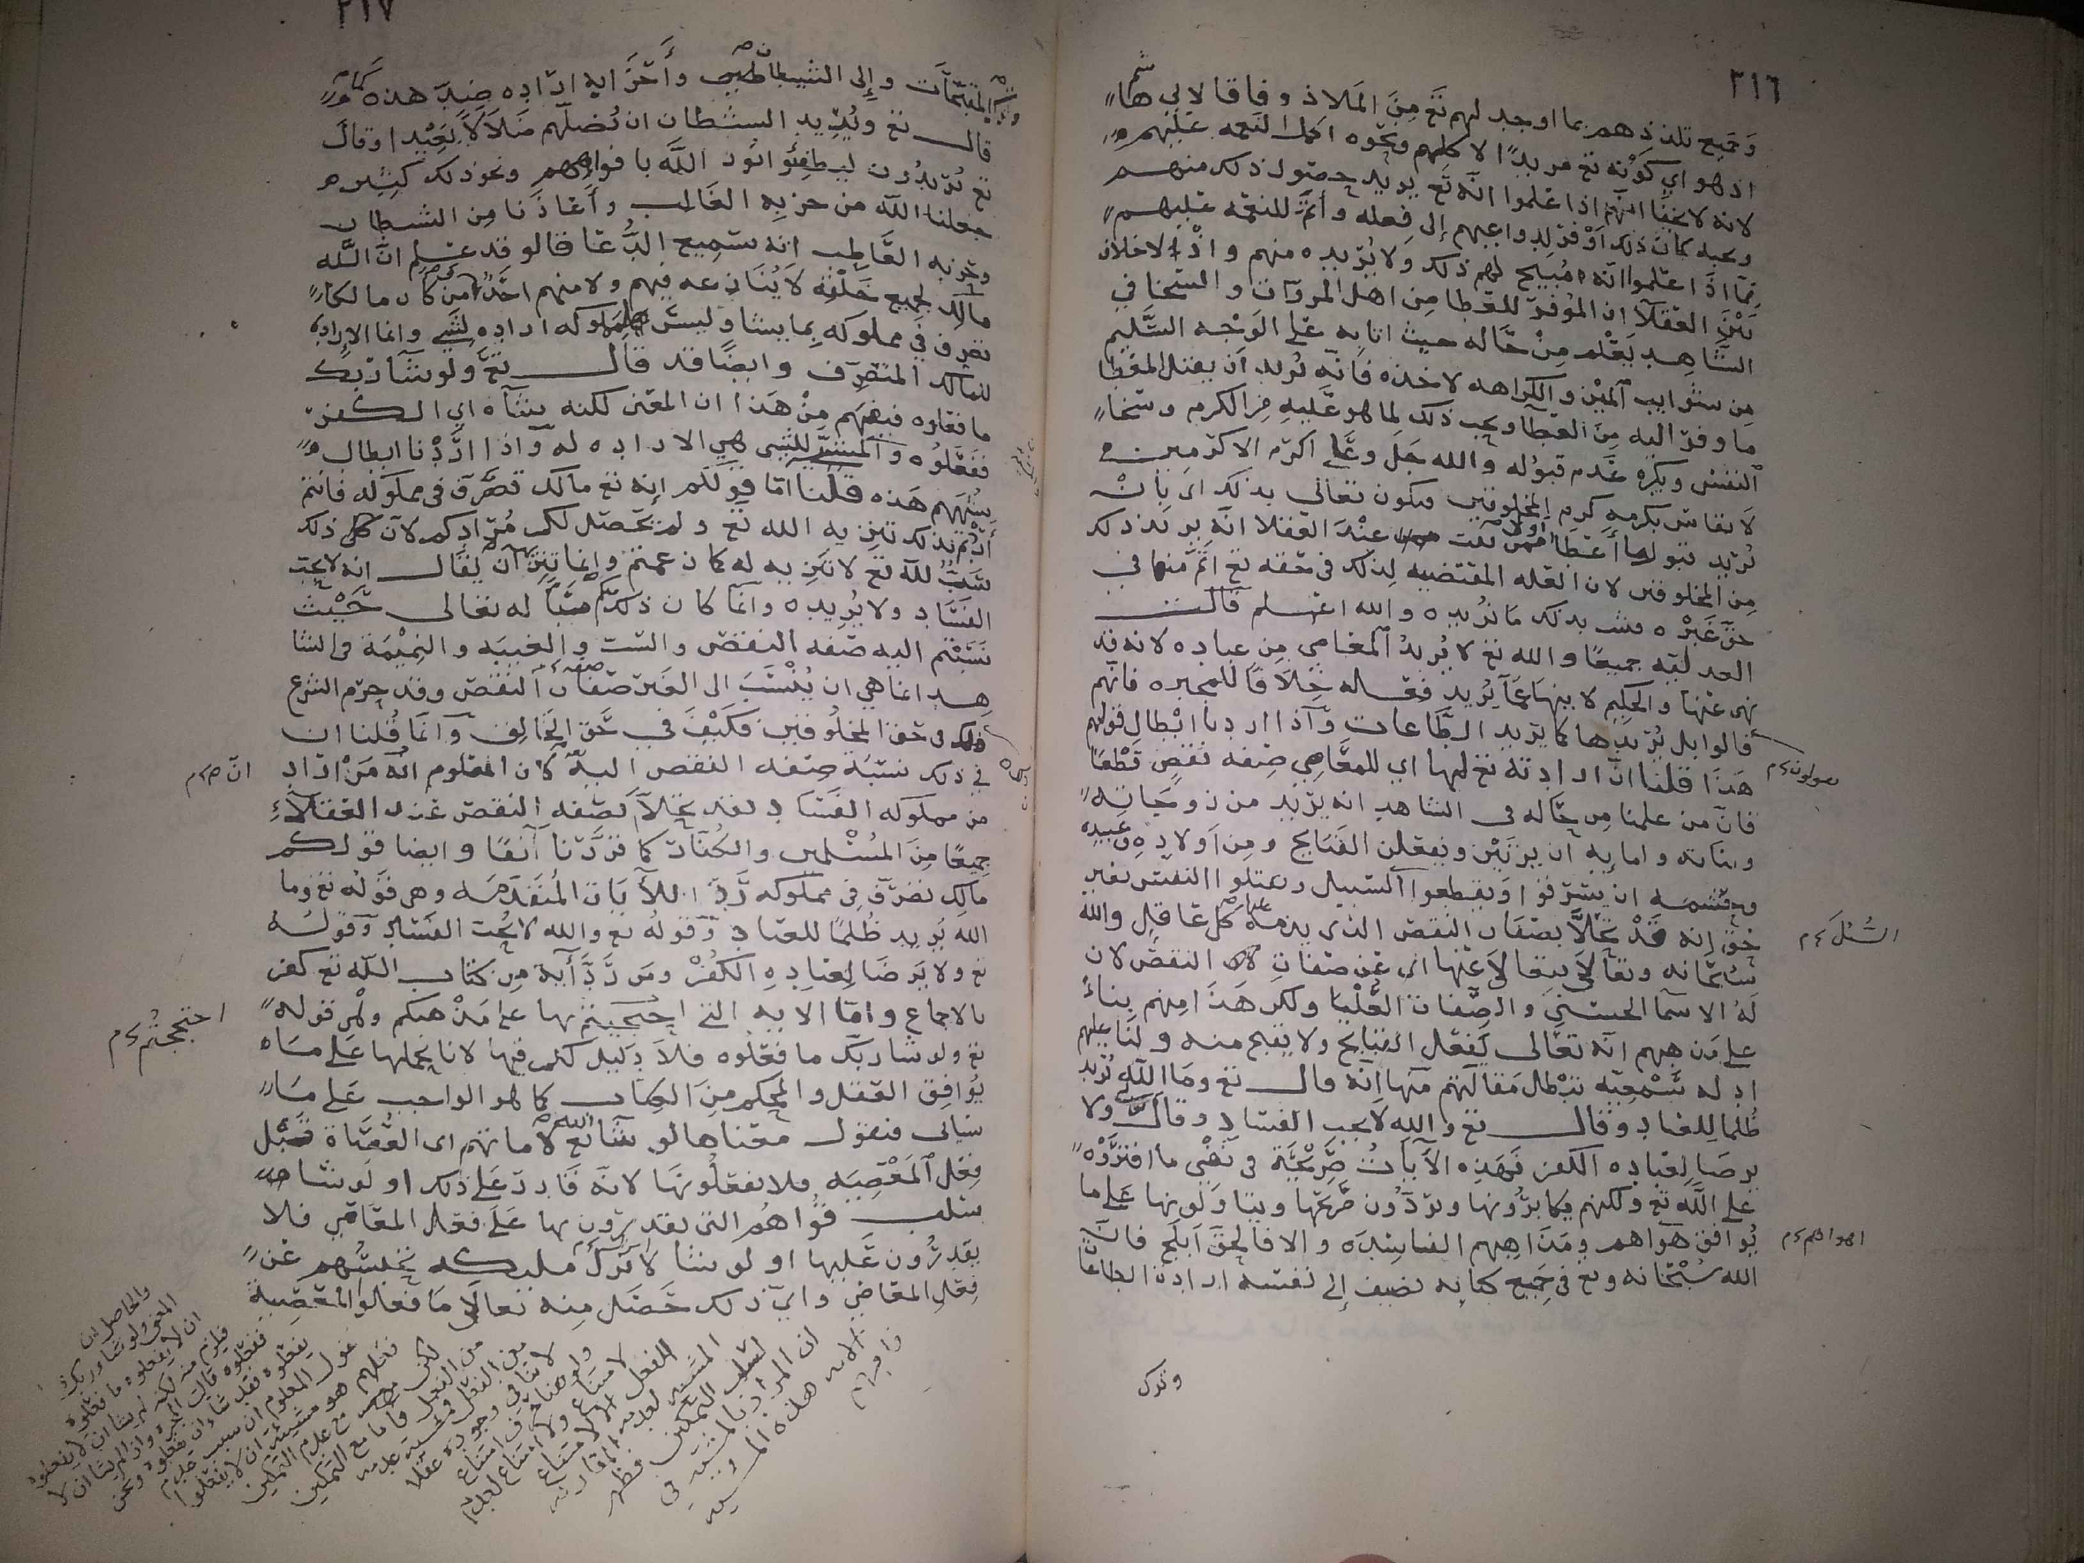 ٢١٦
وجميع تلذذهم بما اوجد لهم تع من الملاذ وفاقا لابي هاشم
اذ هو اي كونه تع مريدا لاكلهم ونحوه اكمل النعمه عليهم
لانه لا يخفا انهم اذا علموا انه تع يريد حصول ذلك منهم
ويحبه كان ذلك اوفر لدواعيهم إلى فعله وأتم للنعمه عليهم
مما اذا اعلموا انه مبيح لهم ذلك ولا يريده منهم واذ لا خلاف
بين العقلآ ان الموفر للعطا من اهل المروات والسخا في
الشاهد يعلم من حاله حيث اتا به على الوجه السليم
من شوايب المين والكراهه لاخذه فانه يريد أن يقبل المعطا
ما وفر اليه من العطآ ويحب ذلك لما هو عليه من الكرم وسخا
النفس ويكره عدم قبوله والله جل وعلى اكرم الاكرمين
لا يقاس بكرمه كرم المخلوقين فيكون تعالى بذلك اى بان
يريد قبول ما أعطا اولا ممن ثبت عند العقلا انه يريد ذلك
من المخلوقين لان العله المقتضيه لذلك في حقه تع اتم منها في
حق غيره فثبت بذلك ما نريده والله اعلم قالت
العدليه جميعا والله تع لا يريد المعاصي من عباده لانه قد
نهى عنها والحكيم لا ينها عما يريد فعله خلافا للمجبره فانهم
قالوا بل يريدها كما يريد الطاعات واذا اردنا ابطال قولهم
هذا قلنا ان ارادته تع لها اي للمعاصي صفه نقص قطعا
فان من علمنا من حاله في الشاهد انه يريد من زوجاته
وبناته وامايه ان يزنين ويفعلن القبايح ومن اولاده وعبيده
وحشمه ان يسرقوا ويقطعوا السبيل ويقتلوا النفس بغير
حق انه قد تحلا بصفات النقص الذى يذمه عليها كل عاقل والله
سبحانه وتعالى يتعالى عنها اى عن صفات النقص لان
له الاسما الحسنى والصفات العليا ولكن هذا منهم بناء
على مذهبهم انه تعالى يفعل القبايح ولا يقبح منه ولنا عليهم
ادله سمعيه تبطل مقالتهم منها انه قال تع وما الله يريد
ظلما للعباد وقال تع والله لا يحب الفساد وقال ولا
يرضا لعباده الكفر فهذه الآيات صريحة في نفي ما افتروه
على الله تع ولكنهم يكابرونها ويردون صريحها ويتاولونها على ما
يوافق هواهم ومذاهبهم الفاسده والا فالحق ابلج فان
الله سبحانه وتع في جميع كتابه يضيف إلى نفسه ارادة الطاعا
يقولون ح م
السبل ح م
اهواهم ح م
وترك
٢١٧
وترك المقبحات وإلى الشياطين وأحزابه اراده ضد هذه كما
قال تع ويريد الشيطان ان يضلهم ضلالا بعيدا وقال
تع يريدون ليطفئوا نور الله بافواههم ونحو ذلك كثير
جعلنا الله من حزبه الغالب وأعاذنا من الشيطان
وحزبه الغالب انه سميع الدعا قالو قد علم ان الله
مالك لجميع خلقه لا ينازعه فيهم ولا منهم احد ومن كان مالكا
تصرف في مملوكه بما يشا وليس لمملوكه اراده لشي وانما الاراده
للمالك المتصرف وايضا قد قال تع ولو شآ ربك
ما فعلوه فيفهم من هذا ان المعنى لكنه شآه اي الكفر
ففعلوه والمشيه للشي هي الاراده له واذا اردنا ابطال
شبههم هذه قلنا اما قولكم إنه تع مالك تصرف في مملوكه فانتم
أردتم بذلك تنزيه الله تع ولم يحصل لكم مرادكم لان كل ذلك
سب لله تع لا تنزيه له كما زعمتم وانما تنزيهه ان يقال انه لا يحب
الفساد ولا يريده وانما كان ذلك سبا له تعالى حيث
نسبتم اليه صفه النقص والسب والغيبه والنميمة في الشا
هد انما هي ان ينسب الى الغير صفات النقص وقد حرم الشرع
ذلك فى حق المخلوقين فكيف في حق الخالق وانما قلنا ان
في ذلك نسبة صفه النقص اليه لان المعلوم انه من اراد
من مملوكه الفساد فقد تحلآ بصفه النقص عند العقلآء
جميعا من المسلمين والكفار كما قررنا آنفا وايضا قولكم
مالك تصرف في مملوكه رد للآيات المتقدمه وهي قوله تع وما
الله يريد ظلما للعباد وقوله تع والله لا يحب الفساد وقوله
تع ولا يرضا لعباده الكفر ومن رد آية من كتاب الله تع كفر
بالاجماع واما الايه التي احتجيتم بها على مذهبكم وهي قوله
تع ولو شا ربك ما فعلوه فلا دليل لكم فيها لانا نحملها على ما
يوافق العقل والمحكم من الكتاب كما هو الواجب على ما
سياتى فنقول معناها لو شآ الله تع لاماتهم اى العصاة قبل
فعل المعصيه فلا يفعلونها لانه قادر على ذلك او لو شا
سلب قواهم التي يقدرون بها على فعل المعاصي فلا
يقدرون عليها او لو شا لانزل ملائكه تحبسهم عن
فعل المعاصي واي ذلك حصل منه تعالى ما فعلوا المعصية
ان ح م
احتججتم ح م
والحاصل ان
المعنى ولو شا ربك
ان لا يفعلوه ما فعلوه